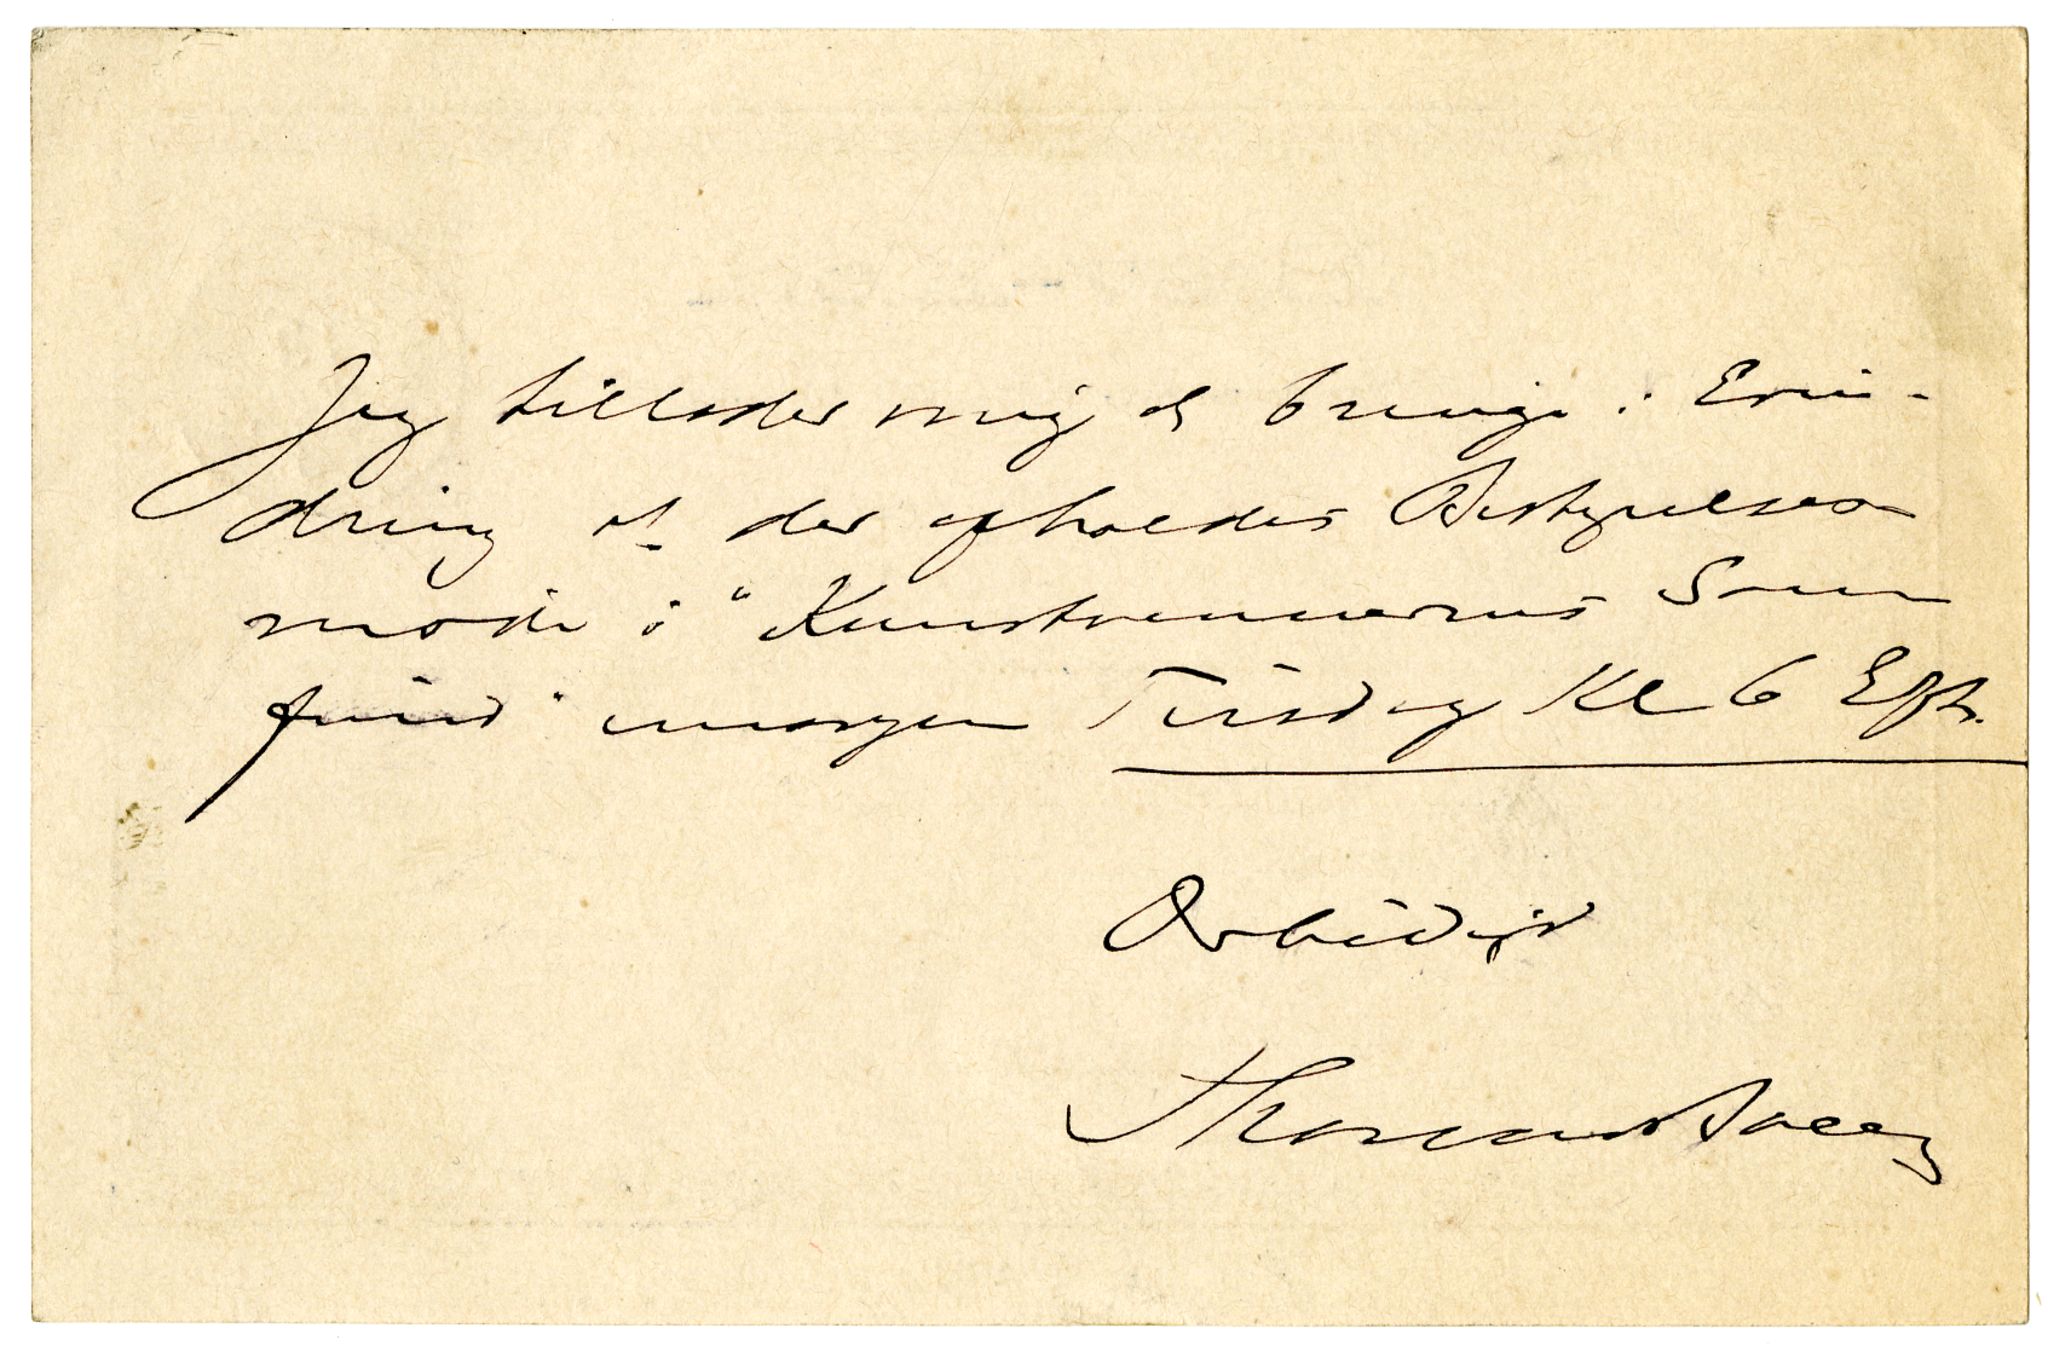 Jeg tillader mig at bringe i Erin-
dring at der afholdes Bestyrelses
møde i "Kunstvennernes Sam
fund" imorgen Tirsdag Kl 6 Eft.
Ærbødigst
Thomas